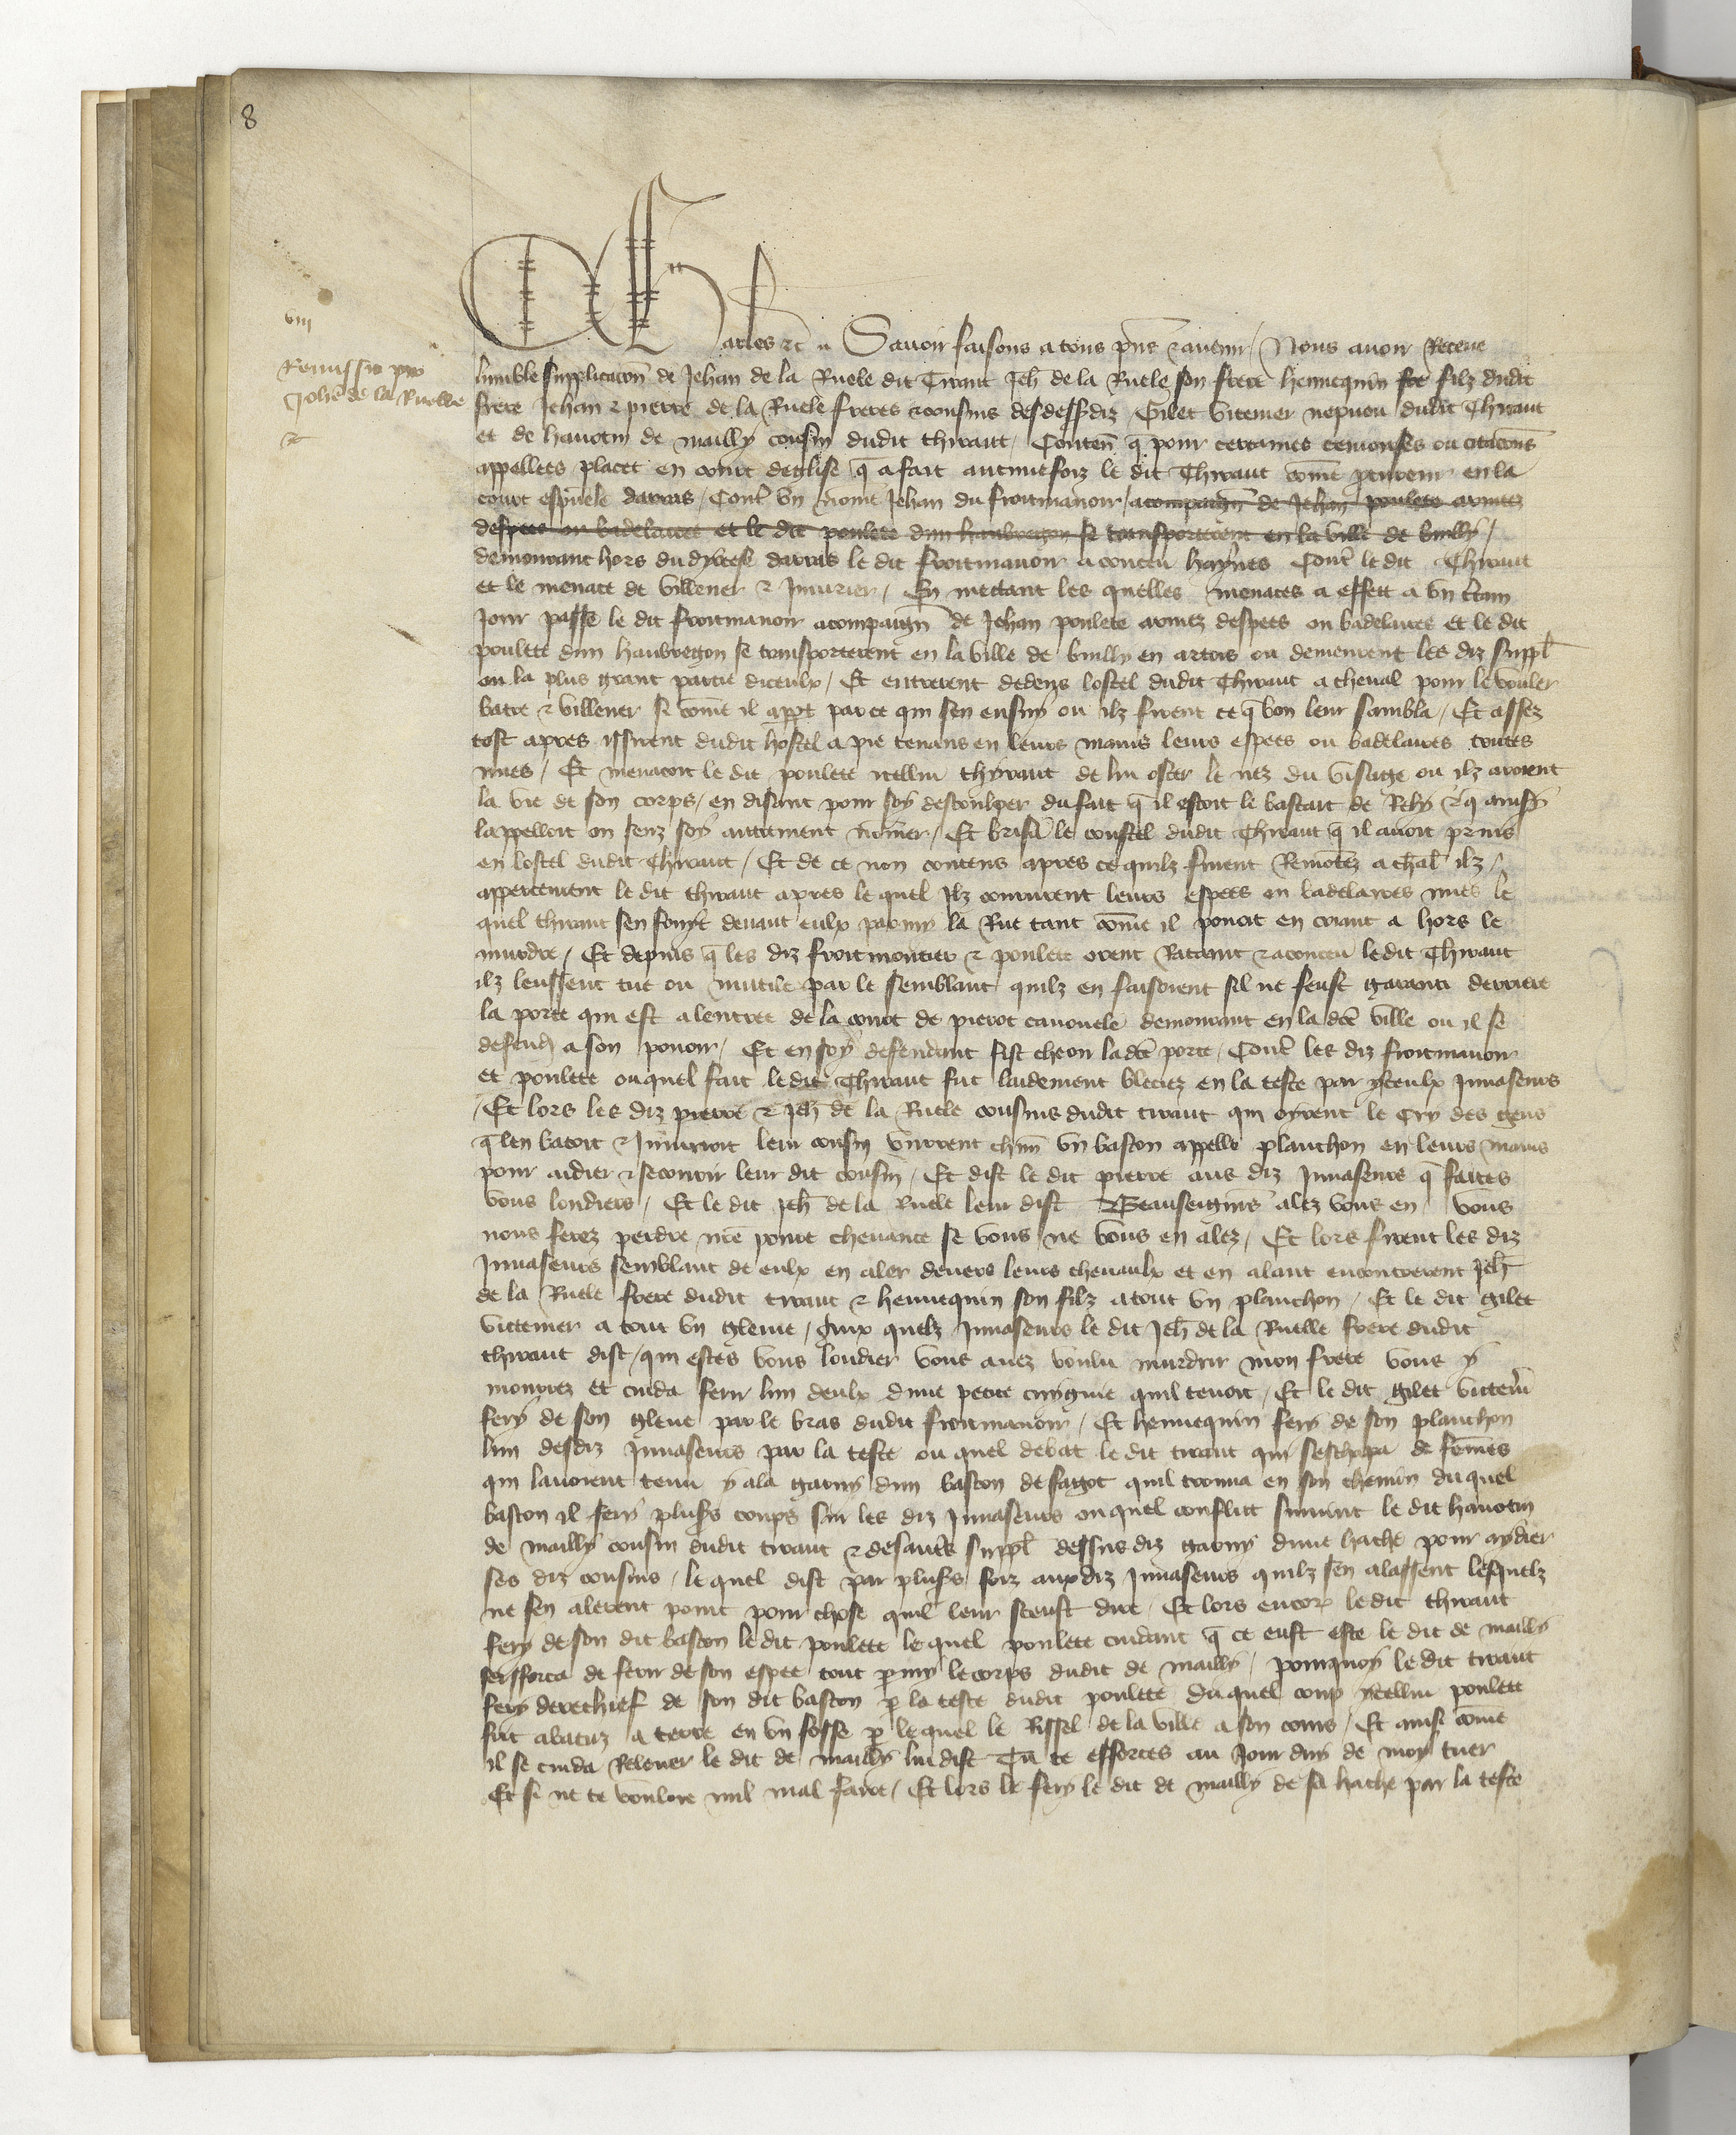 8
viii
Remissio pro
Johe de la Ruelle
&c
Charles &c Savoir faisons a tous pns & avenir / Nous avoir Receue
lumble supplicacion de Jehan de la Ruele dit Tirant Jeh de la Ruele son frere hennequin filz dudit
frere Jehan & pierre de la Ruele freres & cousins des dessdiz Gilet vitemer nepveu dudit Thirant
et de havotin de mailly cousin dudit thirant / Conten q pour certaines semonses ou citacons
appellees places en court deglise q a fait autrefoiz le dit Thirant come en la
court espuele darras / Cont un nome Jehan du froitmanoir / acompaign de Jehan poulete armez
despees ou badelaires et le dit poulete dun haubregon se transporterent en la ville de buully /
demourant hors du dyocese darras le dit froitmanoir a conceu haynes Cont le dit Thirant
et le menace de villener & Jniurier / En mettant les quelles menaces a effect a un ctain
Jour passe le dit froitmanoir acompaign de Jehan poulete armez despees ou badelaires et le dit
poulete dun haubregon se transporterent en la ville de buully en artois ou demeurent les diz suppl
ou la plus grant partie diceulx / Et entrerent dedens lostel dudit Thirant a cheval pour le vouler
batre & villener si come il appt par ce qui sen ensuy ou ilz firent ce q bon leur sambla / Et assez
tost apres issirent dudit hostel a pie tenans en leurs mains leurs espees ou badelaires toutes
nues / Et menacoit le dit poulete icellui thyrant de lui oster le nez du visaige ou ilz avroient
la vie de son corps / en disant pour soy descoulper du fait q il estoit le bastart de Rely & q ainsy
lappelloit on senz soy autrement nomer / Et brisa le coustel dudit Thirant q il avoit prins
en lostel dudit Thirant / Et de ce non contens apres ce quilz furent Remotez a chal ilz /
appercurent le dit thirant apres le quel Jlz coururent leurs espees ou badelaires nues le
quel thirant sen fouyt devant eulx parmy la Rue tant come il pouoit en criant a hors le
murdre / Et depuis q les diz froitmontier & poulete orent Rataint & aconceu ledit Thirant
ilz leussent tue ou mutile par le semblant quilz en faisoient sil ne feust garanti derriere
la porte qui est a lentree de la court de pierot canonele demourant en la dce ville ou il se
defendi a son pouoir / Et en soy defendant fist cheoir ladce porte / Cont les diz froitmanoir
et poulete ouquel fait ledit Thirant fut laidement bleciez en la teste par yceulx Jnvaseurs
/ Et lors les diz pierre & Jeh de la Ruele cousins dudit tirant qui oyrent le Cry des gens
q len batoit & Jniurioit leur cousin vinrent chun un baston appelle planchon en leurs mains
pour aidier & secourir leur dit cousin / Et dist le dit pierre aus diz Jnvaseurs q faites
vous loudiers / Et le dit Jeh de la Ruele leur dist Beauseigneurs alez vous en vous
nous ferez perdre nre povre chevance se vous ne vous en alez / Et lors firent les diz
Jnvaseurs semblant de eulx en aler devers leurs chevaulx et en alant encontrerent Jeh
de la Ruele frere dudit tirant & hennequin son filz atout un planchon / Et le dit gilet
vittemer a tout un gleive / aux quelz Jnvaseurs le dit Jeh de la Ruelle frere dudit
thirant dist / qui estes vous loudier vous avez voulu murdrir mon frere vous y
mourrez et cuida ferir lun deulx dune petite cuignie quil tenoit / Et le dit gilet vittem
fery de son gleive par le bras dudit froitmanoir / Et hennequin fery de son planchon
lun desdiz Jnvaseurs par la teste ou quel debat le dit tirant qui seschapa de femes
qui lavoient tenu y ala garny dun baston de fagot quil trouva en son chemin du quel
baston il fery plusrs coups sur les diz Jnvaseurs ouquel conflict survint le dit havotin
de mailly cousin dudit tirant & desautrs suppl dessusdiz garny dune hache pour aydier
ses diz cousins / lequel dist par plusrs foiz aux diz Jnvaseurs quilz sen alassent lesquelz
ne sen alerent point pour chose quil leur sceust dire / Et lors encor ledit thirant
fery de son dit baston ledit poulete lequel poulete cuidant q ce eust este le dit de mailly
sefforca de ferir de son espee tout pmy le corps dudit de mailly / pourquoy le dit tirant
fery derechief de son dit baston p la teste dudit poulete duquel coup ycellui poulete
fut abatuz a terre en un fosse p lequel le Rissel de la ville a son cours / Et ainsi come
il se cuida Relever le dit de mailly lui dist Tu te efforces au Jour duy de moy tuer
Et si ne te vouloie nul mal faire / Et lors le fery le dit de mailly de sa hache par la teste